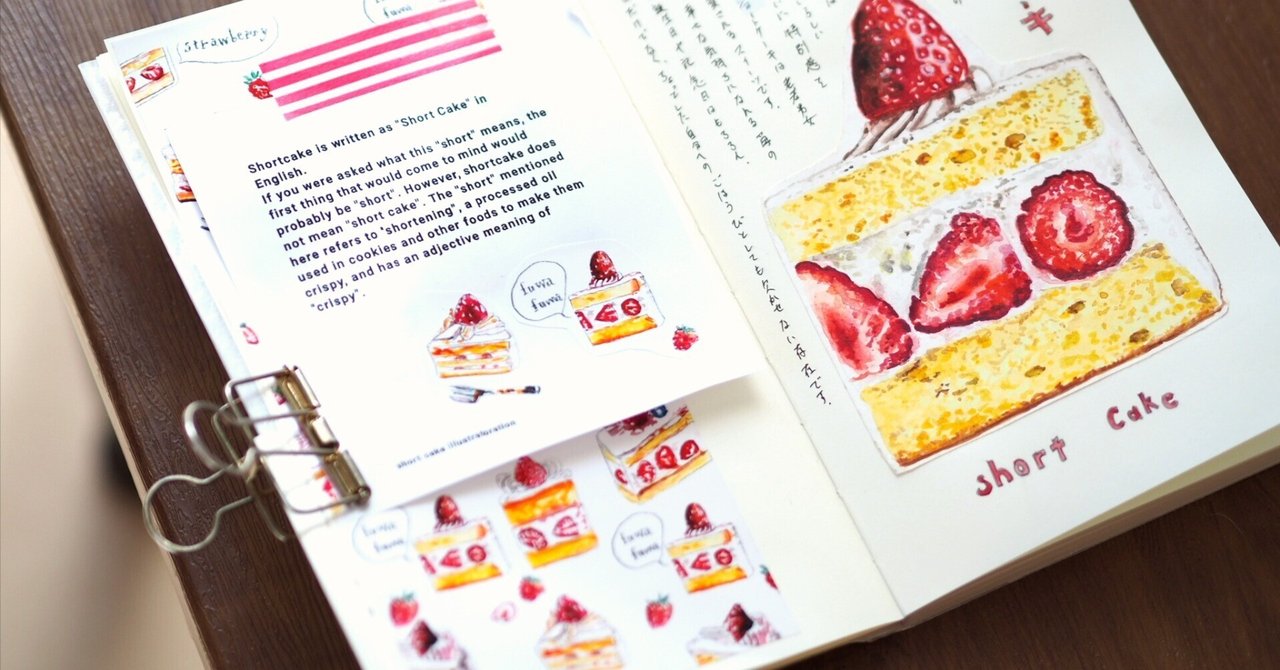 strawberry
fuwa
Shortcake is written as "Short Cake" in
English.
If you were asked what this "short" means, the
first thing that would come to mind would
probably be "short". However, shortcake does
not mean "short cake". The "short" mentioned
here refers to 'shortening", a processed oil
used in cookies and other foods to make them
crispy, and has an adjective meaning of
"crispy".
fuwa
fuwa
short cake illustraloration
fuwa
fuwa
fuwa
fuwa
キ
特別感と
ケーキは老若男女
るスイーツです。
幸せな気持ちになれる苺の
誕生日や記念日はもちろん、
ちょっとした自分へのごほうびとしても欠かせない存在です。
short cake